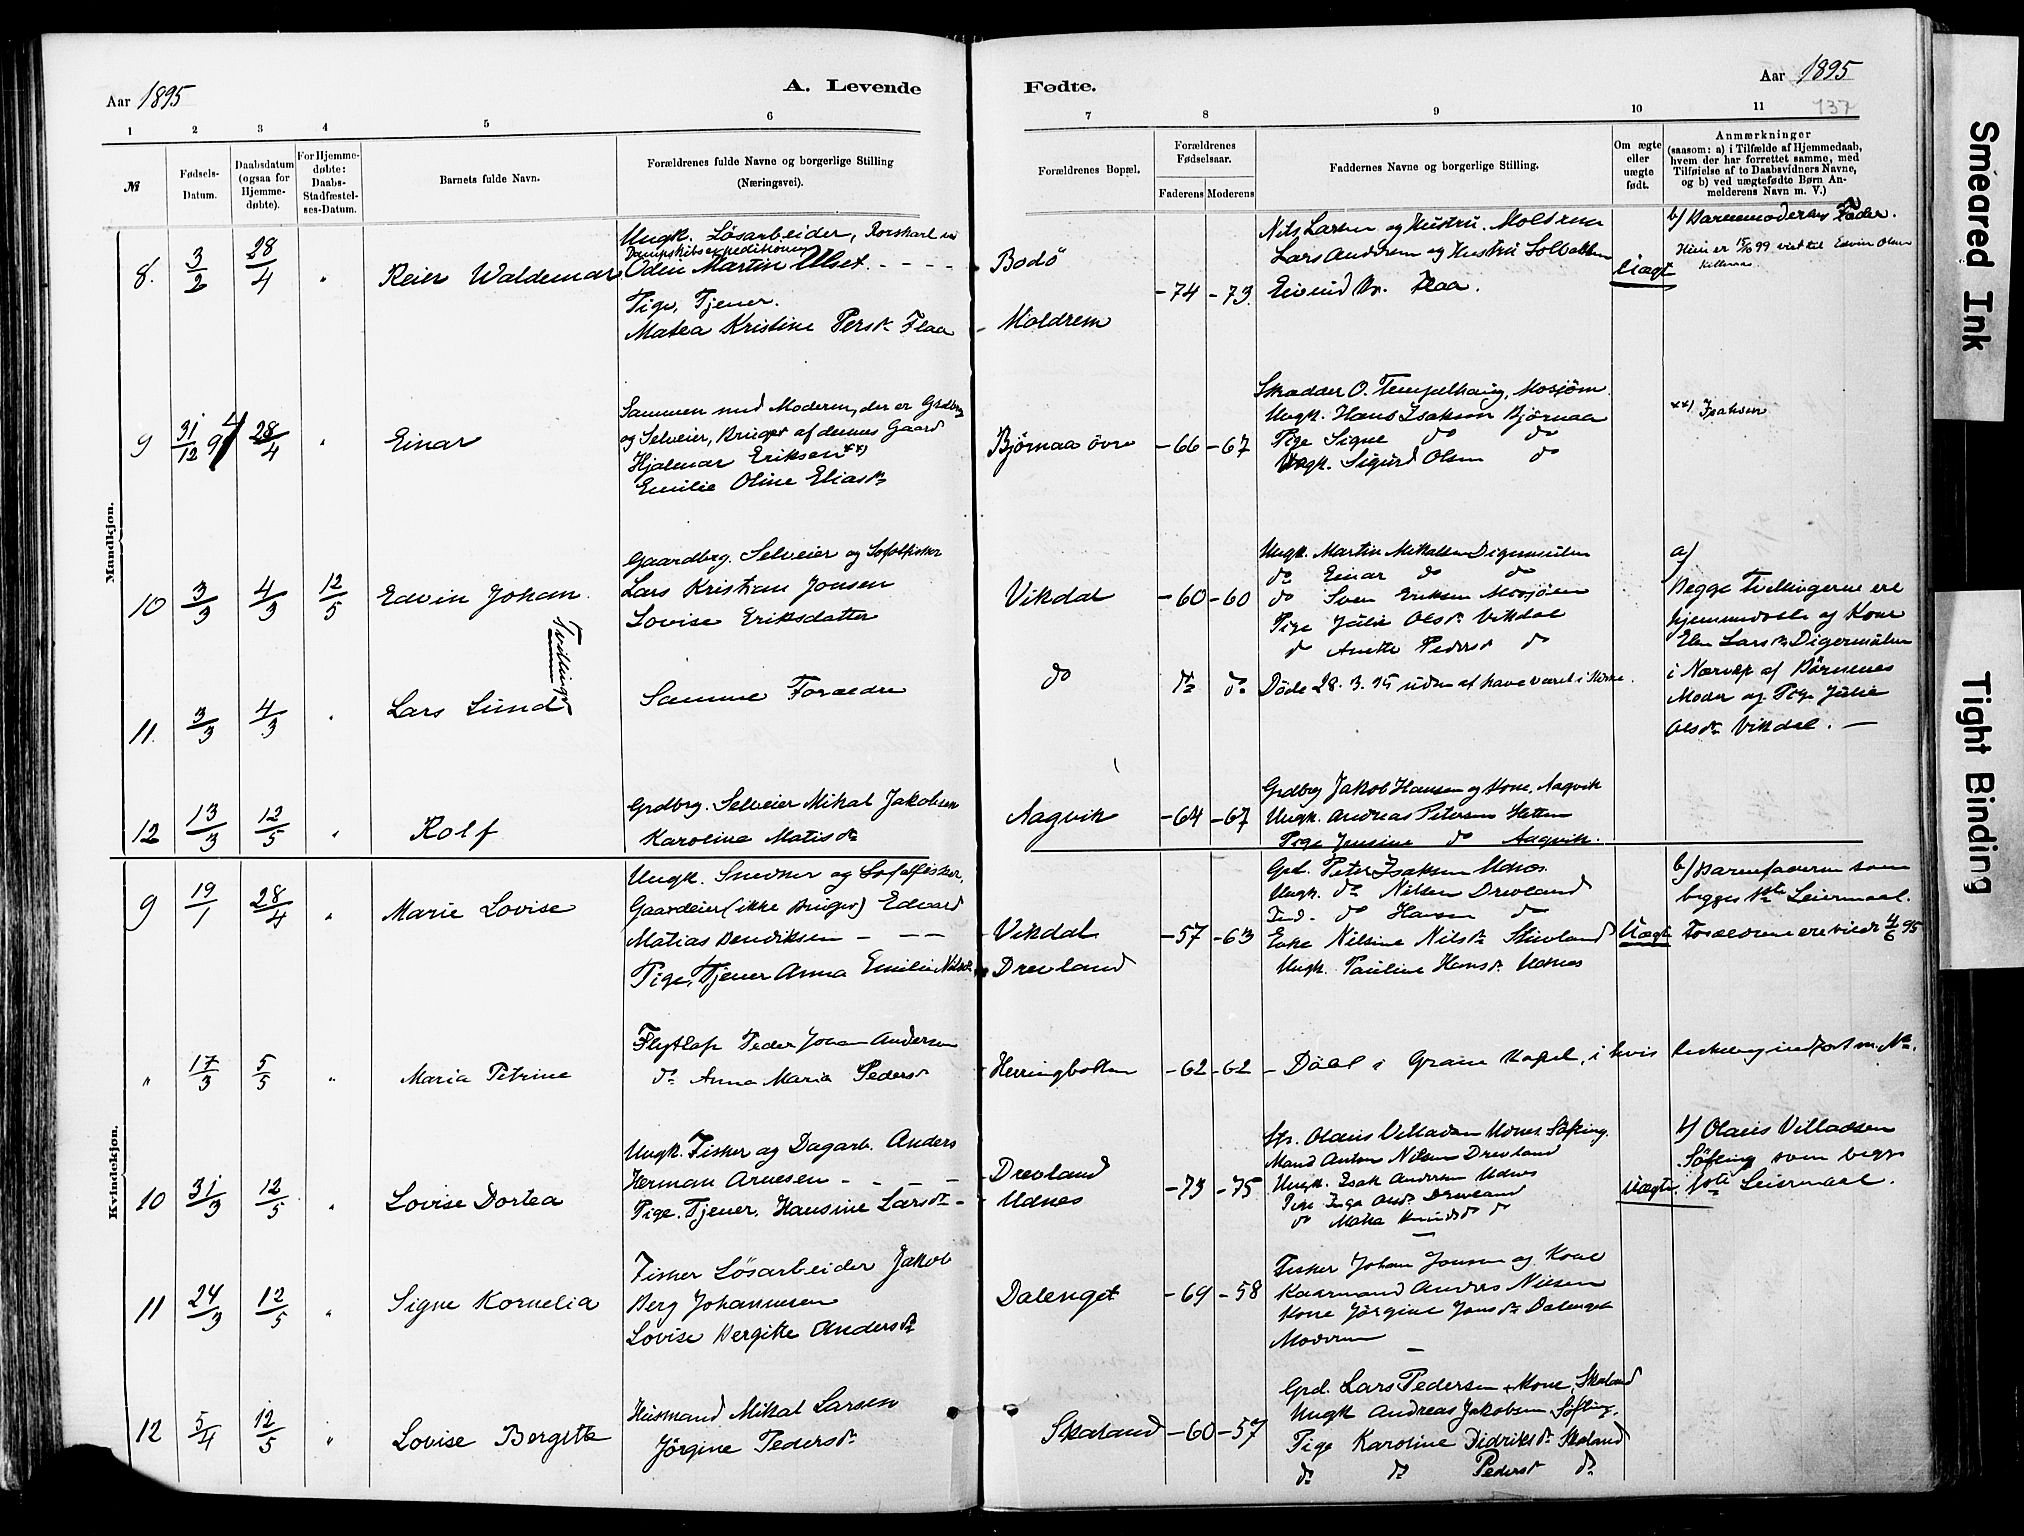 Aar 1895
A. Levende
Fødte.
Aar 1895
137
1 2 3 4 5 6 7 8 9 10 11
№
Fødsels-
Datum.
Daabsdatum
(ogsaa for
Hjemme-
døbte).
For Hjemme-
døbte:
Daabs-
Stadfæstel-
ses-Datum.
Barnets fulde Navn.
Forældrenes fulde Navne og borgerlige Stilling
(Næringsvei).
Forældrenes Bopæl.
Forældrenes
Fødselsaar.
Faderens Moderens
Faddernes Navne og borgerlige Stilling.
Om ægte
eller
uægte
født.
Anmærkninger
(saasom: a) i Tilfælde af Hjemmedaab,
hvem der har forrettet samme, med
Tilføielse af to Daabsvidners Navne,
og b) ved uægtefødte Børn An-
melderens Navn m. V.)
Mandkjøn.
8. 3/2 28/4 " Reier Waldemar
Ungk. Løsarbeider, Rorskarl ved
Dampskibsexpeditionen
Oden Martin Ulset - - - -
Pige, Tjener.
Matea Kristine Persd. Flaa
Bodø
Moldrem
-74 -73
Nils Larsen og Hustru. Moldrem
Lars Andersen og Hustru Solbakken
Eivind Flaa.
Uægte
b) Barnemoderens Fader.
Hun er 15/6 99 viet til Edvin Olsen
9 31/12 94 28/4 " Einar
Sammen med Moderen, der er Grdbrg
og Selveier, Bruger af dennes Gaard
Hjalmar Eriksen xx)
Emilie Oline Eliasd.
Bjørnaa øvre -66 -67
Skrædder O. Tempelhaug, Mosjøen
Ungk. Hans Isaksen Bjørnaa
Pige Signe do do
Ungk. Sigurd Olsen do
xx) Isaksen
10 3/3 4/3 12/5 Edvin Johan
Tvillinger
Gaardbrg. Selveier og Lofotfisker
Lars Kristian Jonsen
Lovise Eriksdatter
Vikdal -60 -60
Ungk. Martin Mikalsen Digermulen
do Einar do do
do Sven Eriksen Mosjøen
Pige Julie Olsd. Vikdal
do Anette Pedersd. do
a)
Begge Tvillingerne ere
hjemmedøbte af Kone
Elen Larsd. Digermulen
i Nærvær af Børnenes
Moder og Pige Julie
Olsd. Vikdal. —
11. 3/3 4/3 " Lars Lund
Samme Forældre
do do do
Døde 28.3.95 uden at have været i Kirke.
12 13/3 12/5 " Rolf
Grdbrg. Selveier Mikal Jakobsen
Karoline Matisd.
Aagvik -64 -67
Grdbrg Jakob Hansen og Kone, Aagvik
Ungk. Andreas Petersen Sletten
Pige Jensine do Aagvik.
Kvindekjøn.
9 19/1 28/4 " Marie Lovise
Ungk. Snedker og Lofotfisker,
Gaardeier (ikke Bruger) Edvard
Matias Bendiksen - - -
Pige, Tjener Anna Emilie Nilsd.
Vikdal
Drevland
-57 -63
Grd. Peter Isaksen Udnes
Ungk. do Nilsen Drevland
Ind. do Hansen do
Enke Nilsine Nilsd. Stuvland
Ungk. Pauline Hansd. Udnes
Uægte
b) Barnefaderen som
begges 1ste Leiermaal.
Forældrene ere viede 4/6 95
" 17/3 5/5 " Maria Petrine
Flytlap Peder Johan Andersen
do Anna Maria Pedersd.
Herringbotten -62 -62
- Døbt i Grane Kapel, i hvis Kirkebog indført m. No.
10 31/3 12/5 " Lovise Dortea
Ungk. Fisker og Dagarb. Anders
Herman Arnesen - - -
Pige. Tjener. Hansine Larsd. -
Drevland
Udnes
-73 -75
Olaus Villadsen Udnes Søfting.
Mand Anton Nilsen Drevland
Ungk. Isak Andersen Udnes
Pige Inga Andsd. Drevland
do Matea Knudsd. do
Uægte
b) Olaus Villadsen
Søfting som begges
1ste Leiermaal.
11 24/3 12/5 " Signe Kornelia
Fisker Løsarbeider Jakob
Berg Johannesen
Lovise Bergitte Andersd.
Dalenget -69 -58
Fisker Johan Jonsen og Kone
Kaarmand Andreas Nilsen
Kone Jørgine Jonsd. Dalenget
Moderen
12 5/4 12/5 " Lovise Bergitte
Husmand Mikal Larsen
Jørgine Pedersd.
Skaland -60 -57
Grd. Lars Pedersen + Kone, Skaland
Ungk Andreas Jakobsen Søfting.
Pige Karoline Didriksd. Skaland
do do Pedersd. do
Smeared Ink
Tight Binding